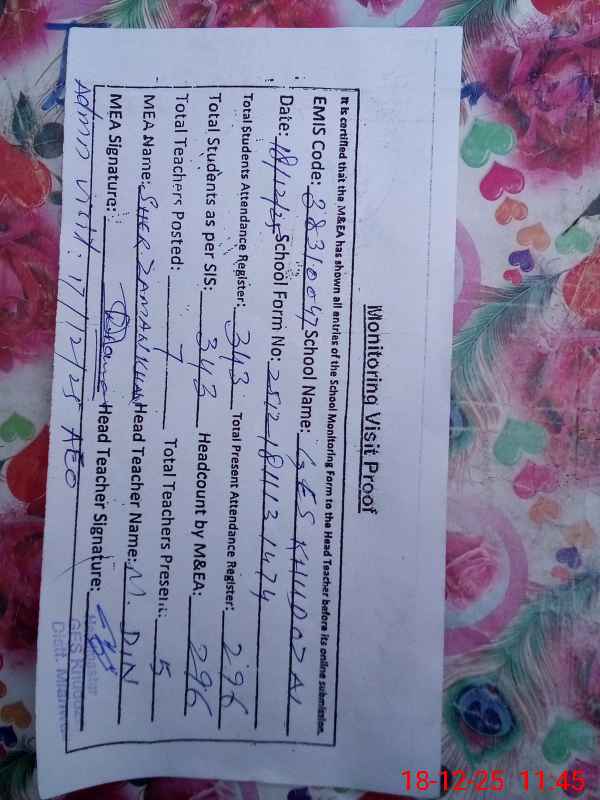 Monitoring Visit Proof
It is certified that the M&EA has shown all entries of the School Monitoring Form to the Head Teacher before its online submission.
EMIS Code: 38310047 School Name: GES KHUDOZAI
Date: 18/12/25 School Form No: 2512181113 1474
Total Students Attendance Register: 343 Total Present Attendance Register: 296
Total Students as per SIS: 343 Headcount by M&EA: 296
Total Teachers Posted: 7 Total Teachers Present: 5
MEA Name: SHER ZAMAN KHAN Head Teacher Name: M. DIN
MEA Signature: Head Teacher Signature:
Admn visit: 17/12/25 AEO
GES
Distt. Mianwali
18-12-25 11:45